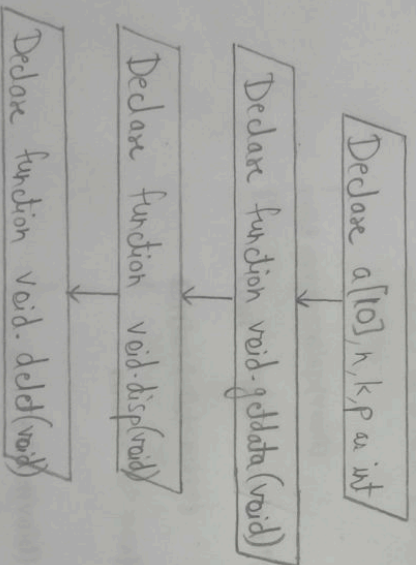 Declare a[10], n, k, p as int
Declare function void.getdata(void)
Declare function void.disp(void)
Declare function void.delet(void)